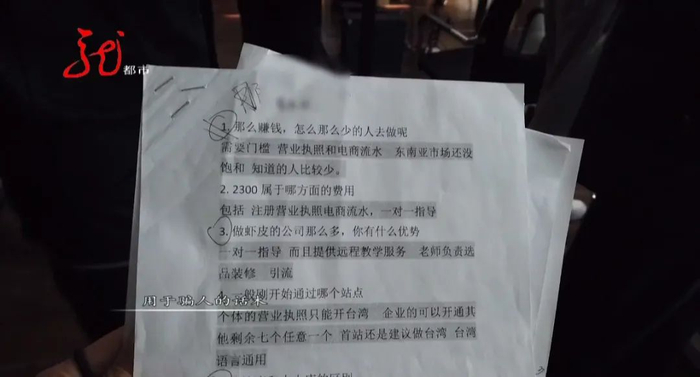 龙 都市
1. 那么赚钱，怎么那么少的人去做呢
需要门槛 营业执照和电商流水 东南亚市场还没
饱和 知道的人比较少。
2. 2300 属于哪方面的费用
包括 注册营业执照电商流水，一对一指导
3. 做虾皮的公司那么多，你有什么优势
一对一指导 而且提供远程教学服务 老师负责选
品装修 引流
4. 一般刚开始通过哪个站点
用于骗人的话术
个体的营业执照只能开台湾 企业的可以开通其
他剩余七个任意一个 首站还是建议做台湾 台湾
语言通用